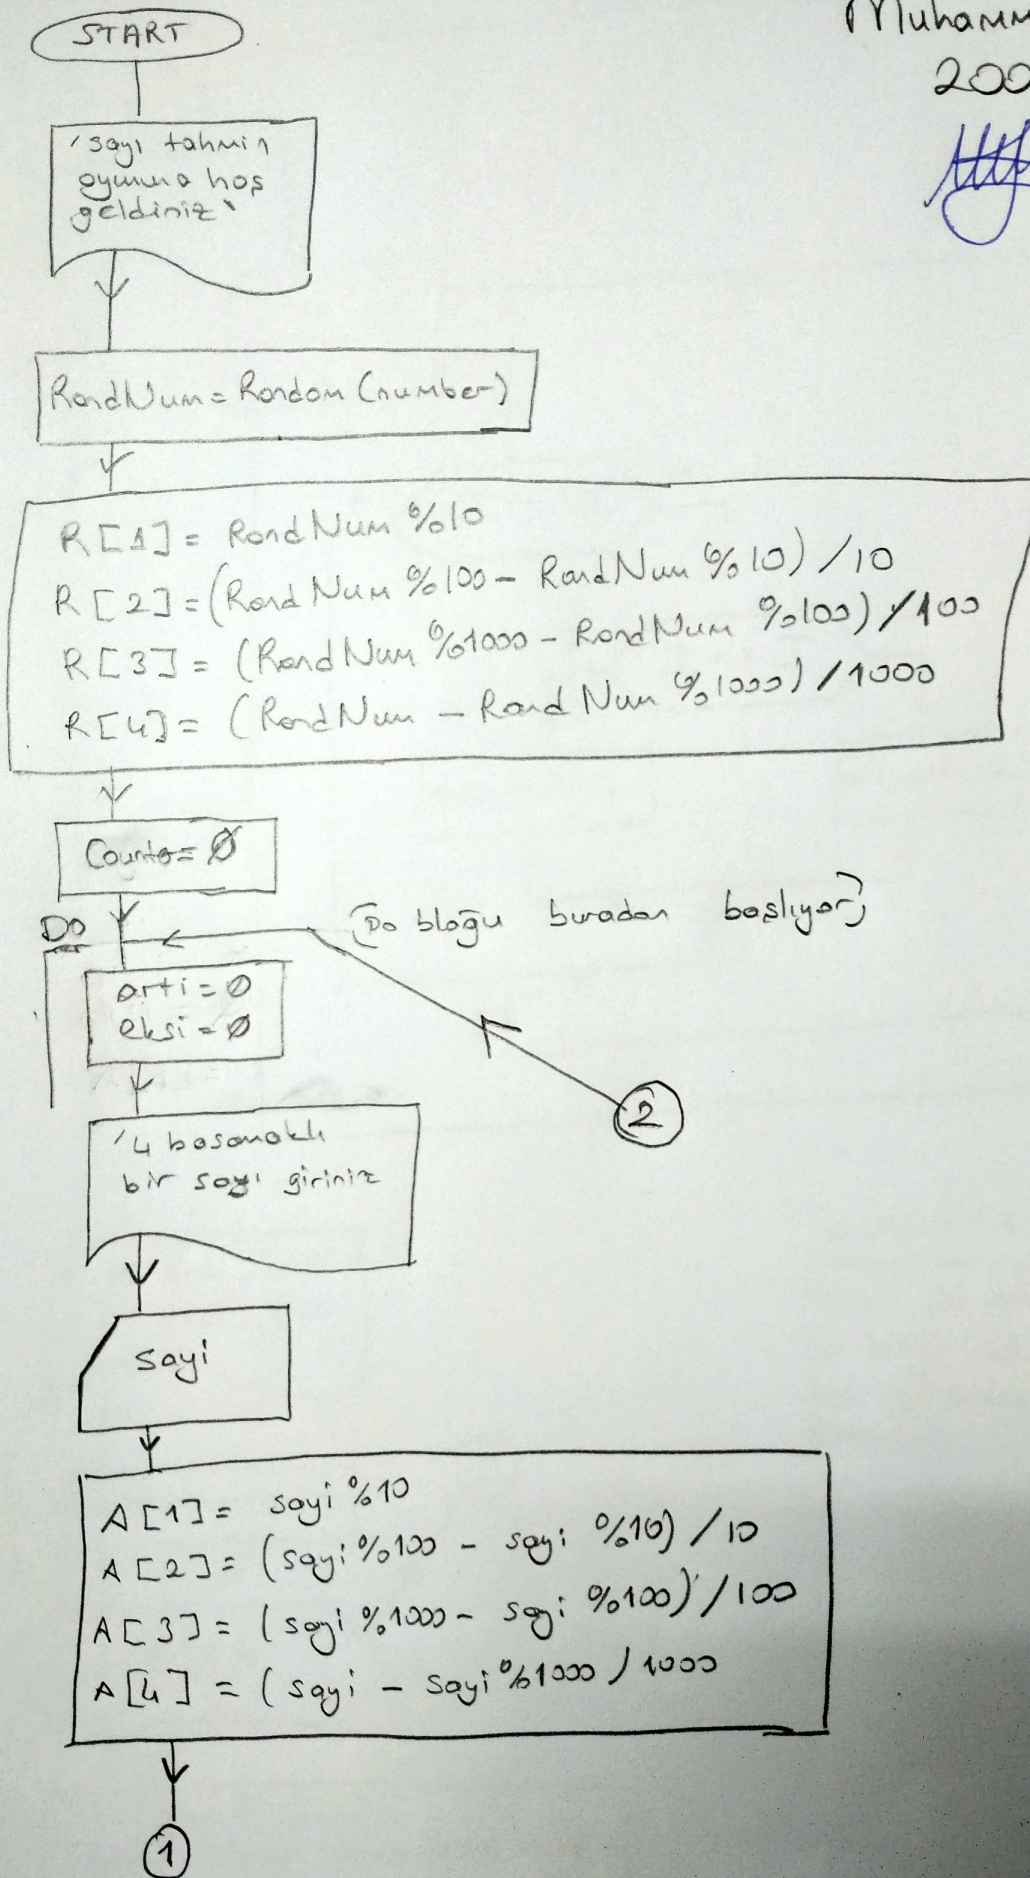 START
Muhamm
200
'sayı tahmin
oyununa hoş
geldiniz'
RandNum = Random (number)
R[1] = RandNum %10
R[2] = (RandNum %100 - RandNum %10) / 10
R[3] = (RandNum %1000 - RandNum %100) / 100
R[4] = (RandNum - RandNum %1000) / 1000
Counter = 0
Do
(Do bloğu buradan başlıyor)
arti = 0
eksi = 0
2
'4 basamaklı
bir sayı giriniz
sayi
A[1] = sayi %10
A[2] = (sayi %100 - sayi %10) / 10
A[3] = (sayi %1000 - sayi %100) / 100
A[4] = (sayi - sayi %1000 / 1000
1